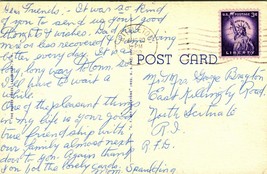 Dear Friends - It was so kind
of you to send us your good
thought & wishes. Dad is
more or less recovered & feeling
better every day. It was
long, long way to come so
I'll have to wait a
while.
One of the pleasant things
in my life is your good
true friendship with
our family almost next
door to you. Again thank
you for the lovely cards.
Mom Spaulding
POST CARD
U.S. POSTAGE 3¢
LIBERTY
Mr. & Mrs. George Brayton
East Killingly Road
North Scituate
R.I.
R.F.D.